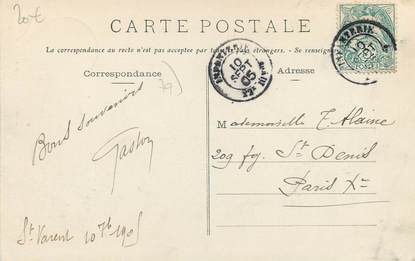 20€
CARTE POSTALE
La correspondance au recto n'est pas acceptée par tous les pays étrangers. Se renseigner
Correspondance
Adresse
10
SEPT
05
10
SEPT
79
Bons souvenirs
Gaston
Mademoiselle T. Alaine
209 fg. St Denis
Paris Xe
St Varent 10 7b 1905